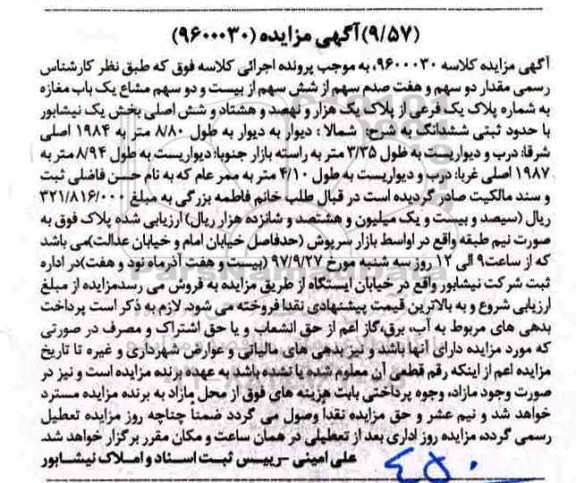 (۹/۵۷)آگهی مزایده (۹۶۰۰۰۳۰)
آگهی مزایده کلاسه ۹۶۰۰۰۳۰، به موجب پرونده اجرائی کلاسه فوق که طبق نظر کارشناس
رسمی مقدار دو سهم و هفت صدم سهم از شش سهم از بیست و دو سهم مشاع یک باب مغازه
به شماره پلاک یک فرعی از پلاک یک هزار و نهصد و هشتاد و شش اصلی بخش یک نیشابور
با حدود ثبتی ششدانگ به شرح: شمالا : دیوار به دیوار به طول ۸/۸۰ متر به ۱۹۸۴ اصلی
شرقا: درب و دیواریست به طول ۳/۳۵ متر به راسته بازار جنوبا: دیواریست به طول ۸/۹۴ متر به
۱۹۸۷ اصلی غربا: درب و دیواریست به طول ۴/۱۰ متر به ممر عام که به نام حسن فاضلی ثبت
و سند مالکیت صادر گردیده است در قبال طلب خانم فاطمه بزرگی به مبلغ ۳۲۱/۸۱۶/۰۰۰
ریال (سیصد و بیست و یک میلیون و هشتصد و شانزده هزار ریال) ارزیابی شده پلاک فوق به
صورت نیم طبقه واقع در اواسط بازار سرپوش (حدفاصل خیابان امام و خیابان عدالت)می باشد
که از ساعت۹ الی ۱۲ روز سه شنبه مورخ ۹۷/۹/۲۷ (بیست و هفت آذرماه نود و هفت)در اداره
ثبت شرکت نیشابور واقع در خیابان ایستگاه از طریق مزایده به فروش می رسدمزایده از مبلغ
ارزیابی شروع و به بالاترین قیمت پیشنهادی نقدا فروخته می شود. لازم به ذکر است پرداخت
بدهی های مربوط به آب، برق،گاز اعم از حق انشعاب و یا حق اشتراک و مصرف در صورتی
که مورد مزایده دارای آنها باشد و نیز بدهی های مالیاتی و عوارض شهرداری و غیره تا تاریخ
مزایده اعم از اینکه رقم قطعی آن معلوم شده یا نشده باشد به عهده برنده مزایده است و نیز در
صورت وجود مازاد، وجوه پرداختی بابت هزینه های فوق از محل مازاد به برنده مزایده مسترد
خواهد شد و نیم عشر و حق مزایده نقدا وصول می گردد ضمناً چناچه روز مزایده تعطیل
رسمی گردد، مزایده روز اداری بعد از تعطیلی در همان ساعت و مکان مقرر برگزار خواهد شد.
علی امینی -رییس ثبت اسناد و املاک نیشابور
۴۵۰